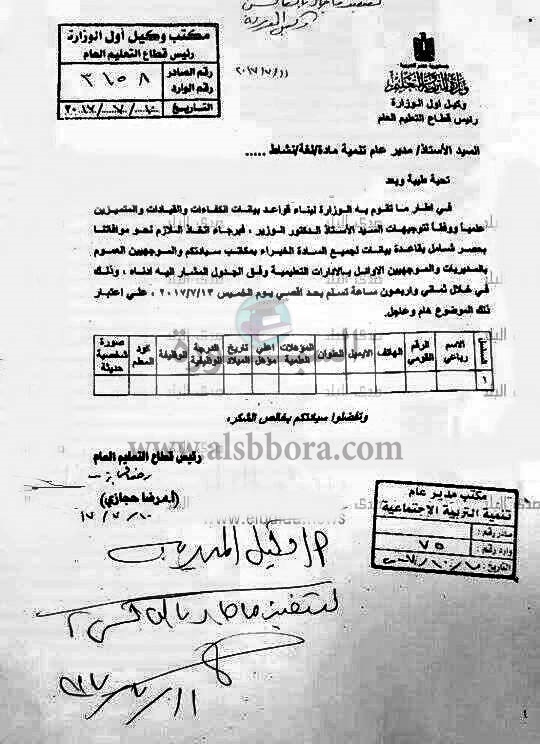 لتنفيذ ما جاء بالفاكس
وكيل المديرية
مكتب وكيل أول الوزارة
رئيس قطاع التعليم العام
رقم الصادر
رقم الوارد
٣١٥٨
التاريخ ١٠/٧/٢٠١٧
٢٠١٧/٧/١١
وزارة التربية والتعليم
وكيل أول الوزارة
رئيس قطاع التعليم العام
السيد الأستاذ/ مدير عام تنمية مادة/لغة/نشاط .....
تحية طيبة وبعد
في إطار ما تقوم به الوزارة لبناء قواعد بيانات الكفاءات والقيادات والمتميزين
علمياً ووفقاً لتوجيهات السيد الأستاذ الدكتور الوزير ، فبرجاء اتخاذ اللازم نحو موافاتنا
بحصر شامل بقاعدة بيانات لجميع السادة الخبراء بمكاتب سيادتكم والموجهين العموم
بالمديريات والموجهين الأوائل بالإدارات التعليمية وفق الجدول المشار إليه أدناه ، وذلك
في خلال ثماني وأربعون ساعة تسلم بحد أقصي يوم الخميس ٢٠١٧/٧/١٣ ، علي اعتبار
ذلك الموضوع هام وعاجل.
مسلسل الاسم رباعي الرقم القومي الهاتف الايميل العنوان المؤهلات العلمية اعلي مؤهل تاريخ الميلاد الدرجة الوظيفية الوظيفة كود المعلم صورة شخصية حديثة
١
وتفضلوا سيادتكم بخالص الشكر،
السبورة
www.alsbbora.com
رئيس قطاع التعليم العام
(أ.د رضا حجازي)
١٧/٧/١٠
مكتب مدير عام
تنمية التربية الاجتماعية
صادر رقم :
وارد رقم : ٧٥
التاريخ :
صدى البلد
elbalad.news
أ/ وكيل المديرية
لتنفيذ ما جاء بالفاكس
١١/٧/٢٠١٧
٤